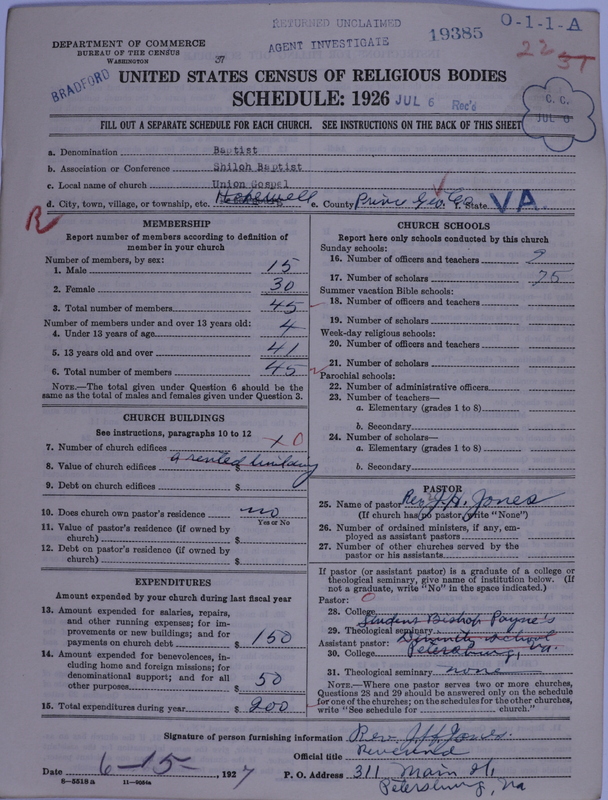 RETURNED UNCLAIMED
AGENT INVESTIGATE
19385
0-1-1-A
DEPARTMENT OF COMMERCE
BUREAU OF THE CENSUS
WASHINGTON
37
22
BRADFORD
UNITED STATES CENSUS OF RELIGIOUS BODIES
SCHEDULE: 1926
JUL 6 Rec'd
C. C.
JUL 6
FILL OUT A SEPARATE SCHEDULE FOR EACH CHURCH. SEE INSTRUCTIONS ON THE BACK OF THIS SHEET
a. Denomination Baptist
b. Association or Conference Shiloh Baptist
c. Local name of church Union Gospel
d. City, town, village, or township, etc. Hopewell e. County Prince Geo. Co. f. State VA.
R
MEMBERSHIP
Report number of members according to definition of
member in your church
Number of members, by sex:
1. Male 15
2. Female 30
3. Total number of members 45
Number of members under and over 13 years old:
4. Under 13 years of age 4
5. 13 years old and over 41
6. Total number of members 45
NOTE.—The total given under Question 6 should be
same as the total of males and females given under Question 3.
CHURCH BUILDINGS
See instructions, paragraphs 10 to 12
7. Number of church edifices x 0
8. Value of church edifices a rented building
9. Debt on church edifices $
10. Does church own pastor's residence no
Yes or No
11. Value of pastor's residence (if owned by
church) $
12. Debt on pastor's residence (if owned by
church) $
EXPENDITURES
Amount expended by your church during last fiscal year
13. Amount expended for salaries, repairs,
and other running expenses; for im-
provements or new buildings; and for
payments on church debt $ 150
14. Amount expended for benevolences, in-
cluding home and foreign missions; for
denominational support; and for all
other purposes $ 50
15. Total expenditures during year $ 200
CHURCH SCHOOLS
Report here only schools conducted by this church
Sunday schools:
16. Number of officers and teachers 9
17. Number of scholars 75
Summer vacation Bible schools:
18. Number of officers and teachers
19. Number of scholars
Week-day religious schools:
20. Number of officers and teachers
21. Number of scholars
Parochial schools:
22. Number of administrative officers
23. Number of teachers—
a. Elementary (grades 1 to 8)
b. Secondary
24. Number of scholars—
a. Elementary (grades 1 to 8)
b. Secondary
PASTOR
25. Name of pastor Rev. J. H. Jones
(If church has no pastor, write "None")
26. Number of ordained ministers, if any, em-
ployed as assistant pastors
27. Number of other churches served by the
pastor or his assistants
If pastor (or assistant pastor) is a graduate of a college or
theological seminary, give name of institution below. (If
not a graduate, write "No" in the space indicated.)
Pastor: 0
28. College
Student Bishop Payne's
29. Theological seminary Divinity School
Assistant pastor:
30. College Petersburg, Va.
31. Theological seminary none
NOTE.—Where one pastor serves two or more churches,
Questions 28 and 29 should be answered only on the schedule
for one of the churches; on the schedules for the other churches,
write "See schedule for church."
Signature of person furnishing information Rev. J. H. Jones.
Official title Reverend
Date 6-15-, 1927 P. O. Address 311 Main St,
8-5518 a 11-9054a Petersburg, Va